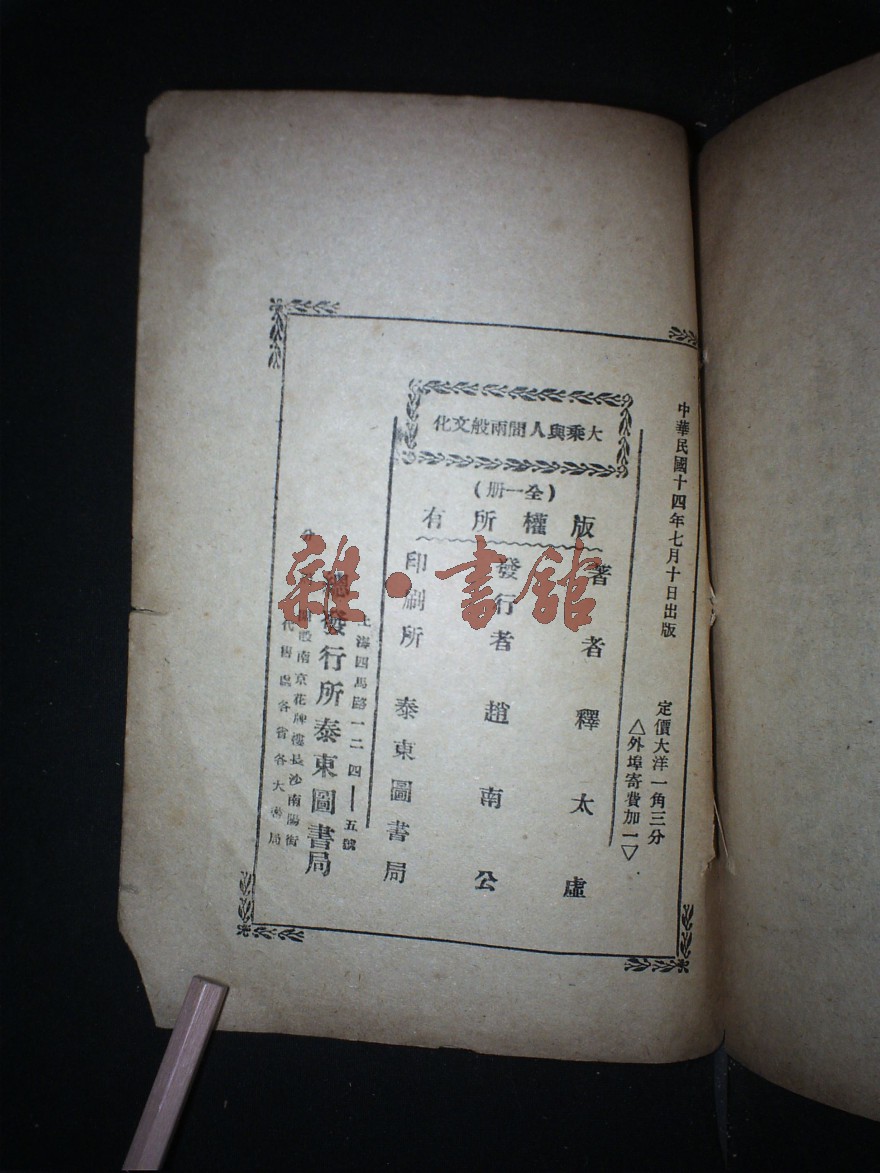 中華民國十四年七月十日出版
定價大洋一角三分
△外埠寄費加一▽
大乘與人間兩般文化
(全一册)
版權所有
著者 釋太虛
發行者 趙南公
印刷所 泰東圖書局
上海四馬路一二四——五號
總發行所泰東圖書局
南京花牌樓長沙南陽街
代售處各省各大書局
雜·書館